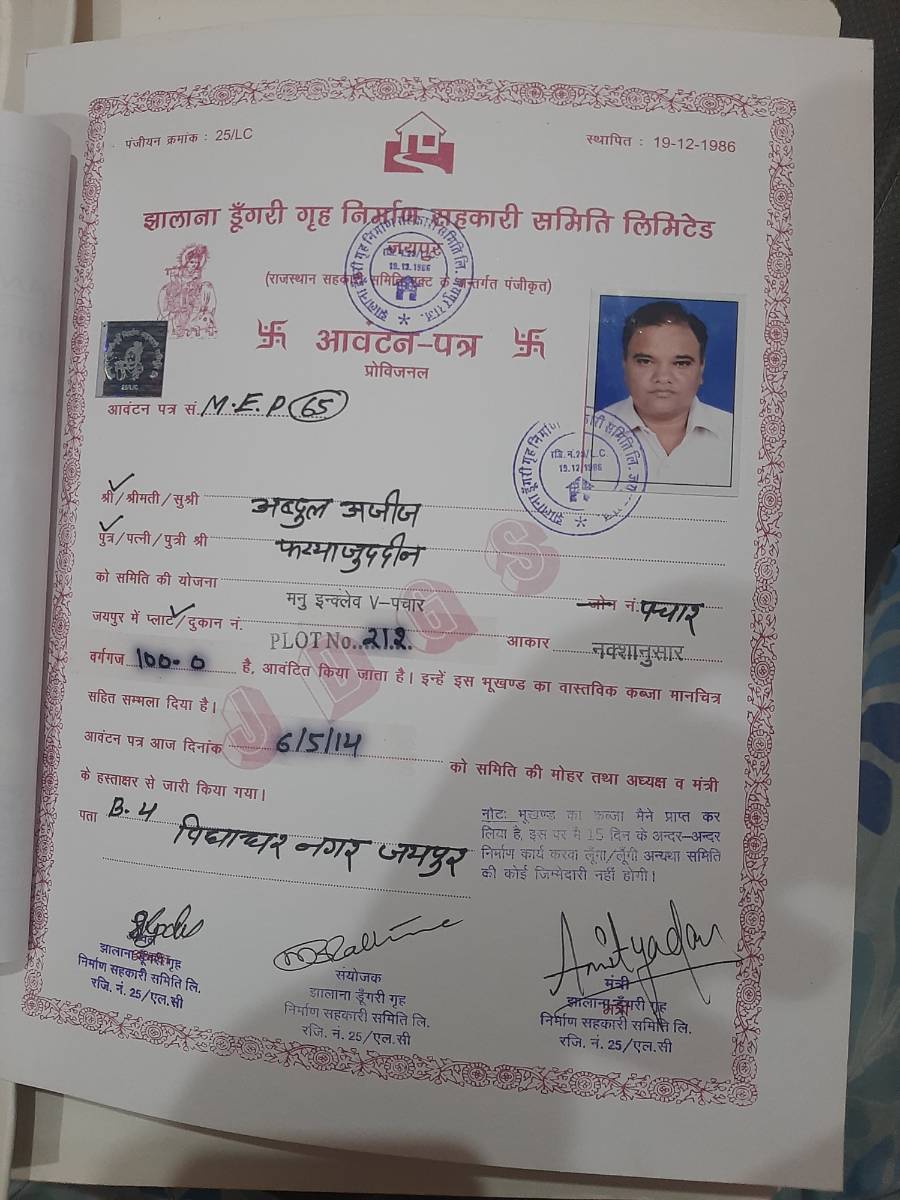 पंजीयन क्रमांक : 25/LC
स्थापित : 19-12-1986
झालाना डूँगरी गृह निर्माण सहकारी समिति लिमिटेड
जयपुर
(राजस्थान सहकारी समिति एक्ट के अन्तर्गत पंजीकृत)
卐 आवंटन-पत्र 卐
प्रोविजनल
25/LC
आवंटन पत्र सं. M.E.P 65
झालाना डूँगरी गृह निर्माण सहकारी समिति लि.
19.12.1986
झालाना डूँगरी गृह निर्माण सहकारी समिति लि.
रजि. नं. 25/L.C.
19.12.1986
श्री/श्रीमती/सुश्री अब्दुल अजीज
पुत्र/पत्नी/पुत्री श्री फय्याजुददीन
को समिति की योजना मनु इन्क्लेव V-पचार जोन नं. पचार
जयपुर में प्लाट/दुकान नं. PLOT No. 212. आकार नक्शानुसार
वर्गगज 100-0 है, आवंटित किया जाता है। इन्हें इस भूखण्ड का वास्तविक कब्जा मानचित्र
सहित सम्मला दिया है।
JDGS
आवंटन पत्र आज दिनांक 6/5/14 को समिति की मोहर तथा अध्यक्ष व मंत्री
के हस्ताक्षर से जारी किया गया।
पता B-4
विद्याधर नगर जयपुर
नोट: भूखण्ड का कब्जा मैने प्राप्त कर
लिया है, इस पर मै 15 दिन के अन्दर-अन्दर
निर्माण कार्य करवा लूँगा/लूँगी अन्यथा समिति
की कोई जिम्मेदारी नहीं होगी।
झालाना डूँगरी गृह
निर्माण सहकारी समिति लि.
रजि. नं. 25/एल.सी
संयोजक
झालाना डूँगरी गृह
निर्माण सहकारी समिति लि.
रजि. नं. 25/एल.सी
Amityadav
मंत्री
झालाना डूँगरी गृह
मंत्री
निर्माण सहकारी समिति लि.
रजि. नं. 25/एल.सी.